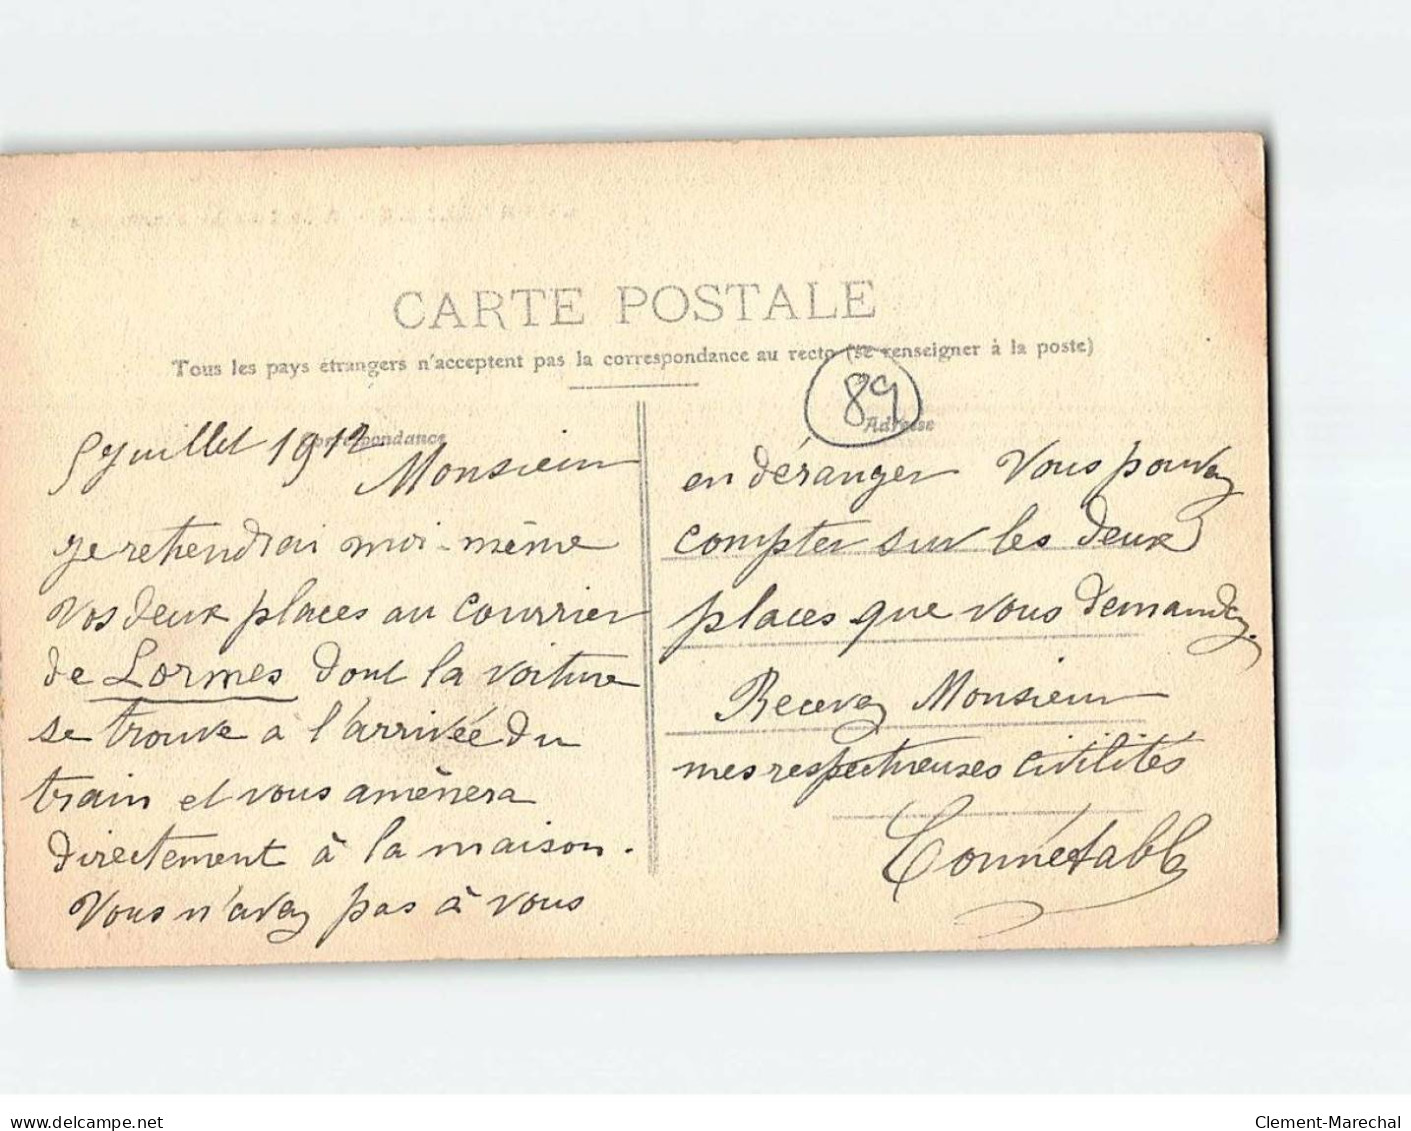 CARTE POSTALE
Tous les pays étrangers n'acceptent pas la correspondance au recto (se renseigner à la poste)
89
Correspondance
Adresse
5 juillet 1912
Monsieur
je retiendrai moi-même
vos deux places au courrier
de Lormes dont la voiture
se trouve a l'arrivée du
train et vous amènera
directement à la maison.
Vous n'avez pas à vous
en déranger Vous pouvez
compter sur les deux
places que vous demandez.
Recevez Monsieur
mes respectueuses civilités
Connétable
www.delcampe.net
Clement-Marechal